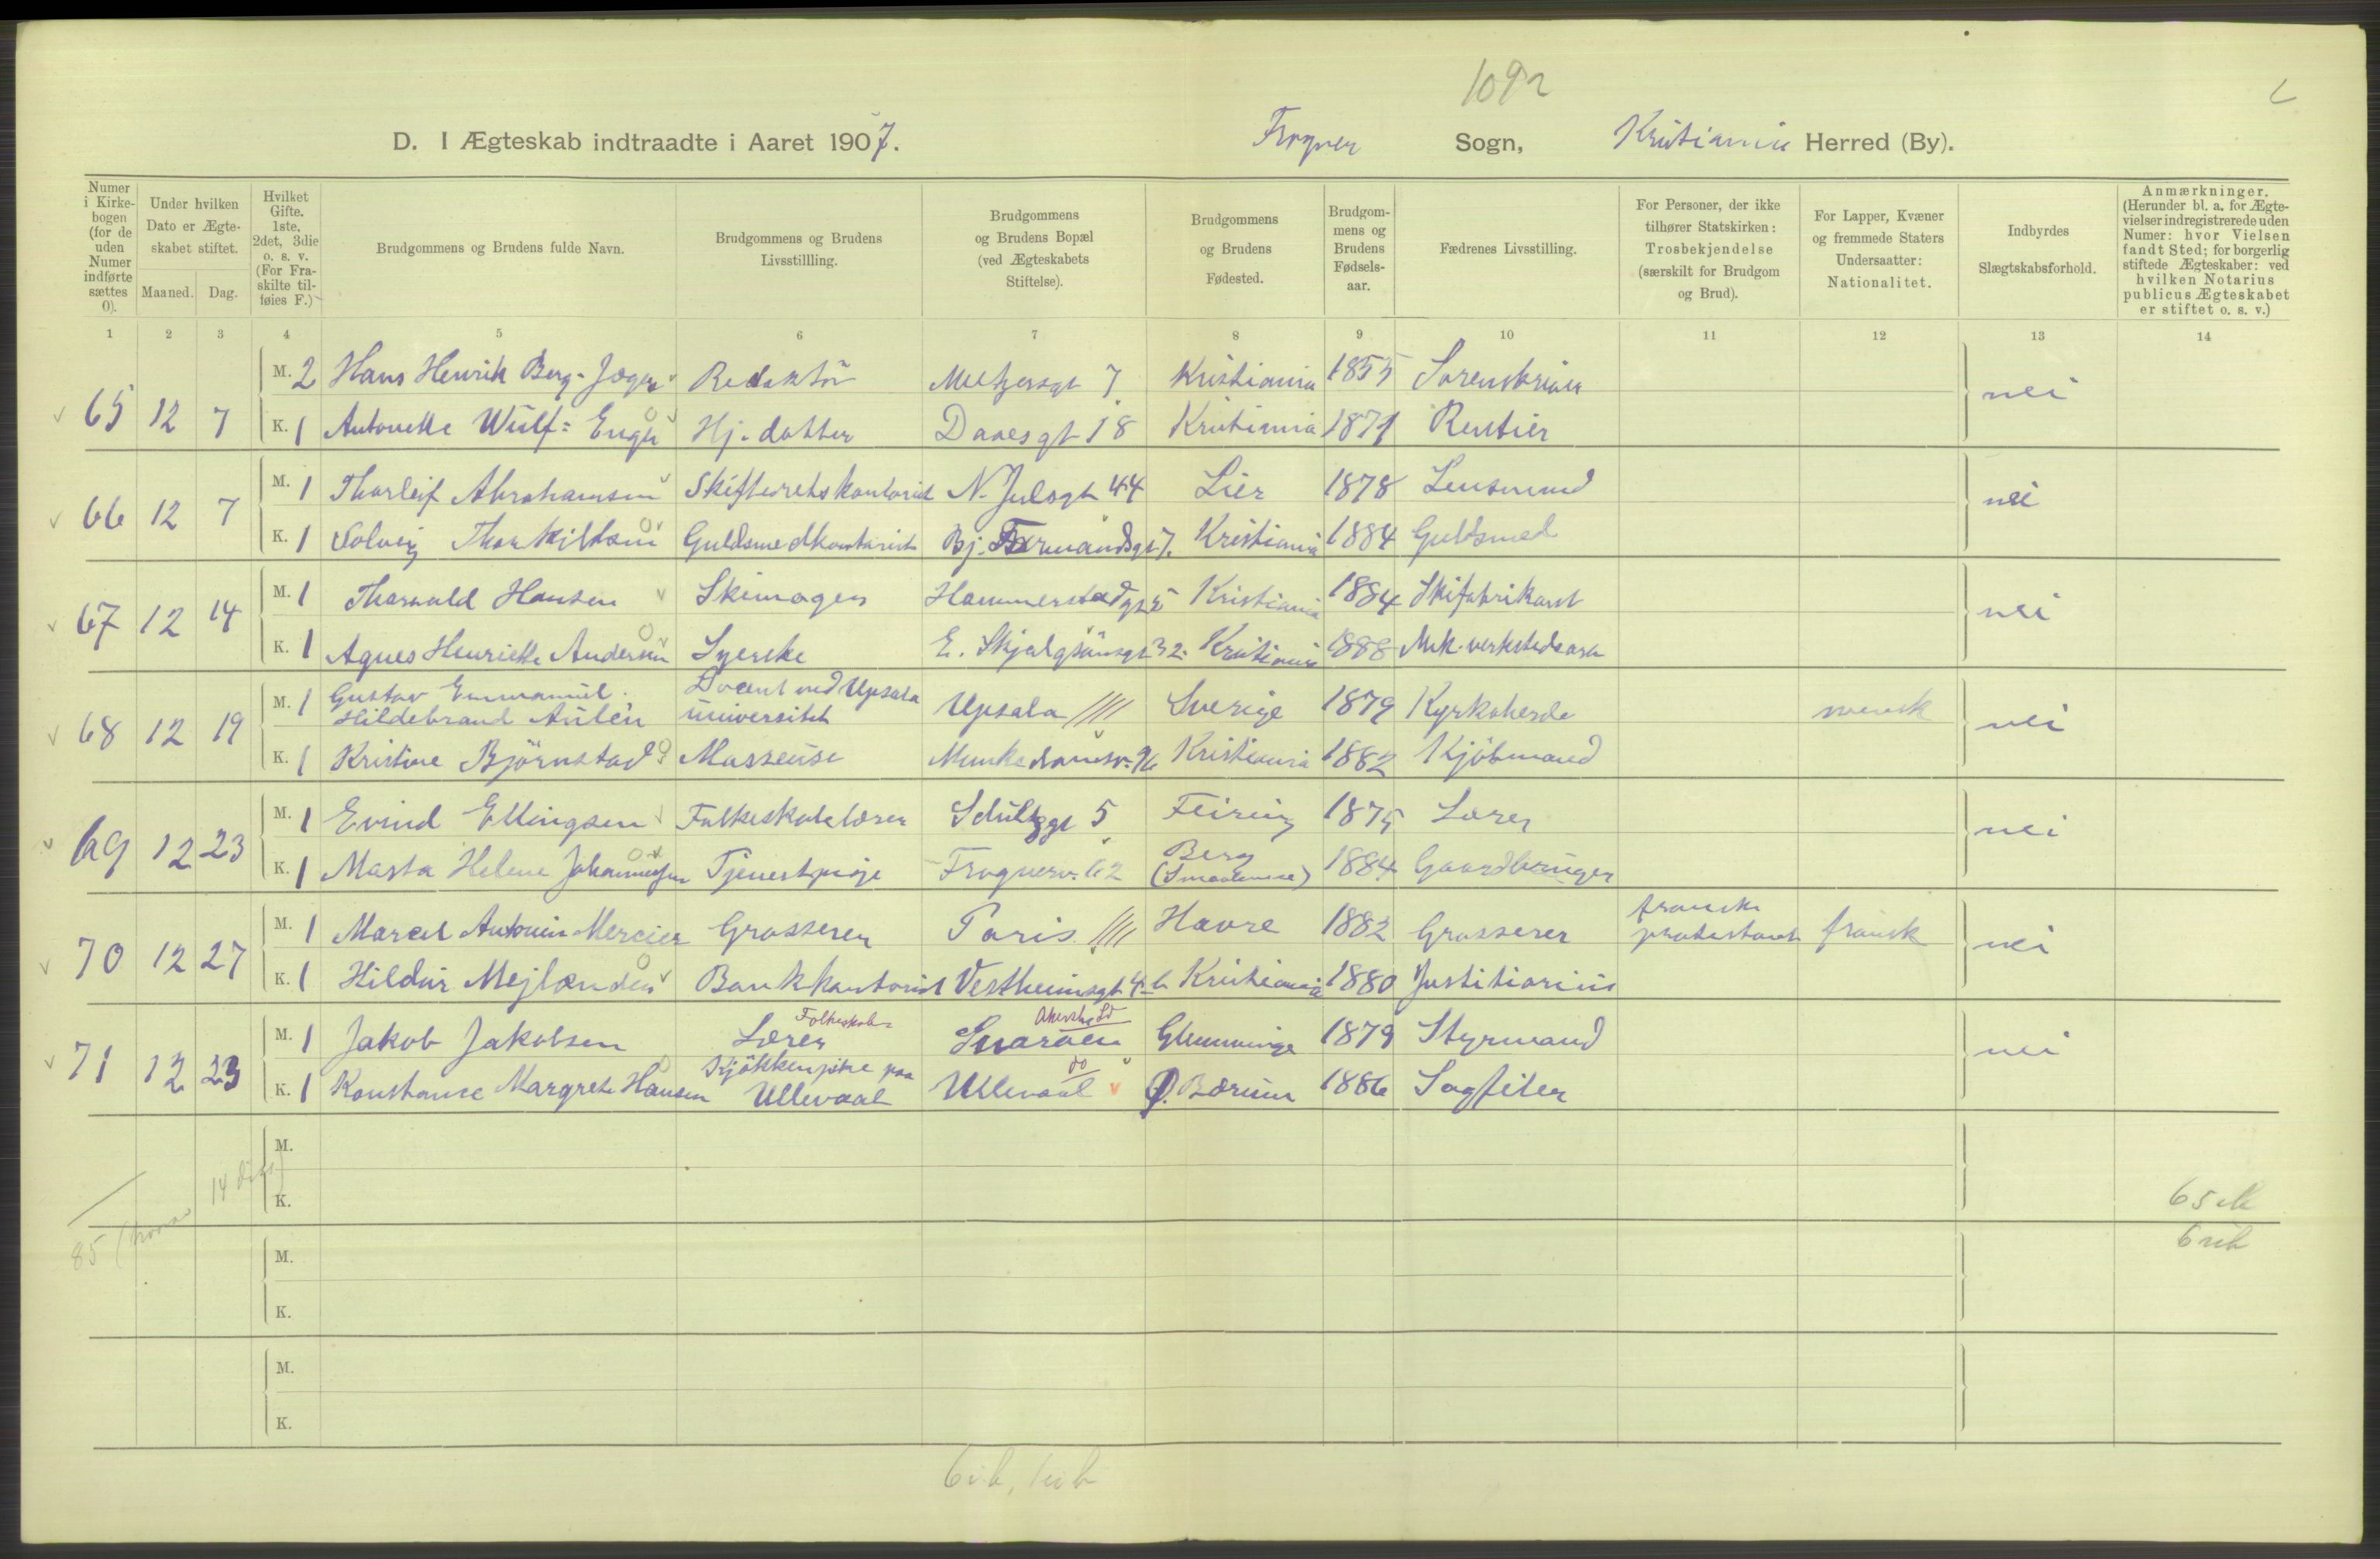 1092
D. I Ægteskab indtraadte i Aaret 1907.
Frogner Sogn, Kristiania Herred (By).
Numer i Kirke-bogen (for de uden Numer indførte sættes 0).
Under hvilken Dato er Ægte-skabet stiftet.
Maaned. Dag.
Hvilket Gifte. 1ste, 2det, 3die o. s. v. (For Fra-skilte til-føies F.)
Brudgommens og Brudens fulde Navn.
Brudgommens og Brudens Livsstillling.
Brudgommens og Brudens Bopæl (ved Ægteskabets Stiftelse).
Brudgommens og Brudens Fødested.
Brudgom-mens og Brudens Fødsels-aar.
Fædrenes Livsstilling.
For Personer, der ikke tilhører Statskirken: Trosbekjendelse (særskilt for Brudgom og Brud).
For Lapper, Kvæner og fremmede Staters Undersaatter: Nationalitet.
Indbyrdes Slægtskabsforhold.
Anmærkninger. (Herunder bl. a. for Ægte-vielser indregistrerede uden Numer: hvor Vielsen fandt Sted; for borgerlig stiftede Ægteskaber: ved hvilken Notarius publicus Ægteskabet er stiftet o. s. v.)
1 2 3 4 5 6 7 8 9 10 11 12 13 14
65 12 7
M. 2 Hans Henrik Berg-Jæger Redaktör Meltzersgt 7 Kristiania 1855 Sorenskriver nei
K. 1 Antonette Wülf-Enger Hj. datter Daaesgt 18 Kristiania 1871 Rentier
66 12 7
M. 1 Thorleif Abrahamsen Skifteretskontorist N. Julsgt 44 Lier 1878 Lensmand nei
K. 1 Solveig Thorkildsen Guldsmedkontorist Bj. Farmandsgt 7. Kristiania 1884 Guldsmed
67 12 14
M. 1 Thorvald Hansen Skimager Hammerstadgt 5 Kristiania 1884 Skifabrikant nei
K. 1 Agnes Henriette Andersen Syerske E. Skjalgsönsgt 32 Kristiania 1888 Mek. verkstedsarb
68 12 19
M. 1 Gustav Emmanuel Hildebrand Aulén Docent ved Upsala universitet Upsala //// Sverige 1879 Kyrkoherde svensk nei
K. 1 Kristine Björnstad Masseuse Munkedamsv. 76 Kristiania 1882 Kjöbmand
69 12 23
M. 1 Evind Ellingsen Folkeskolelærer Schultzgt 5 Feiring 1875 Lærer nei
K. 1 Marta Helene Johannessen Tjenestpige Frognerv. 62 Berg (Smaalenene) 1884 Gaardbruger
70 12 27
M. 1 Marcel Antonin Mercier Grosserer Paris //// Havre 1882 Grosserer fransk protestant fransk nei
K. 1 Hildur Mejlænder Bankkontorist Vestheimsgt 4b Kristiania 1880 Justitiarius
71 12 23
M. 1 Jakob Jakobsen Folkeskole Lærer Akershus Snarøen Glemminge 1879 Styrmand nei
K. 1 Konstance Margrete Hansen Kjökkenpike paa Ullevaal do Ullevaal Ø. Bærum 1886 Sagfiler
M.
K.
M.
K.
M.
K.
14
85
65
6